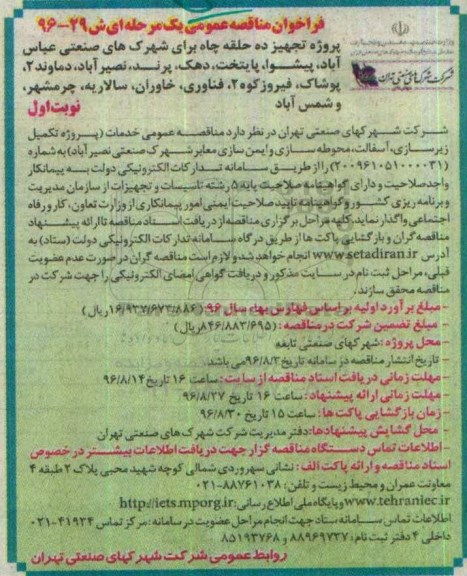 فراخوان مناقصه عمومی یک مرحله ای ش ۲۹-۹۶
پروژه تجهیز ده حلقه چاه برای شهرک های صنعتی عباس
آباد، پیشوا، پایتخت، دهک، پرند، نصیرآباد، دماوند۲،
پوشاک، فیروزکوه۲، فناوری، خاوران، سالاریه، چرمشهر،
و شمس آباد
نوبت اول
شرکت شهرکهای صنعتی تهران
شرکت شهرکهای صنعتی تهران در نظر دارد مناقصه عمومی خدمات (پروژه تکمیل
زیرسازی، آسفالت، محوطه سازی و ایمن سازی معابر شهرک صنعتی نصیرآباد) به شماره
(۲۰۰۹۶۱۰۵۱۰۰۰۰۳۱) را از طریق سامانه تدارکات الکترونیکی دولت به پیمانکار
واجدصلاحیت و دارای گواهینامه صلاحیت پایه ۵ رشته تاسیسات و تجهیزات از سازمان مدیریت
و برنامه ریزی کشور و گواهینامه تایید صلاحیت ایمنی امور پیمانکاری از وزارت تعاون، کار و رفاه
اجتماعی واگذار نماید. کلیه مراحل برگزاری مناقصه از دریافت اسناد مناقصه تا ارائه پیشنهاد
مناقصه گران و بازگشایی پاکت ها از طریق درگاه سامانه تدارکات الکترونیکی دولت (ستاد) به
آدرس www.setadiran.ir انجام خواهد شد و لازم است مناقصه گران در صورت عدم عضویت
قبلی، مراحل ثبت نام در سایت مذکور و دریافت گواهی امضای الکترونیکی را جهت شرکت در
مناقصه محقق سازند.
- مبلغ برآورد اولیه بر اساس فهارس بهاء سال ۹۶: (۱۶/۹۳۷/۶۷۳/۸۸۶ریال)
- مبلغ تضمین شرکت در مناقصه: (۸۴۶/۸۸۳/۶۹۵ریال)
محل پروژه: شهرکهای صنعتی تابعه
- تاریخ انتشار مناقصه در سامانه تاریخ ۹۶/۸/۳ می باشد.
- مهلت زمانی دریافت اسناد مناقصه از سایت: ساعت ۱۶ تاریخ ۹۶/۸/۱۴
- مهلت زمانی ارائه پیشنهاد: ساعت ۱۶ تاریخ ۹۶/۸/۲۷
- زمان بازگشایی پاکت ها: ساعت ۱۵ تاریخ ۹۶/۸/۳۰
- محل گشایش پیشنهادها: دفتر مدیریت شرکت شهرک های صنعتی تهران
- اطلاعات تماس دستگاه مناقصه گزار جهت دریافت اطلاعات بیشتر در خصوص
اسناد مناقصه و ارائه پاکت الف: نشانی سهروردی شمالی کوچه شهید محبی پلاک ۲ طبقه ۴
معاونت عمران و محیط زیست و تلفن: ۸۸۷۶۱۰۳۸-۰۲۱
www.tehraniec.ir و پایگاه ملی اطلاع رسانی: http://iets.mporg.ir
اطلاعات تماس سامانه ستاد جهت انجام مراحل عضویت در سامانه: مرکز تماس ۴۱۹۳۴-۰۲۱
داخلی ۴ دفتر ثبت نام: ۸۸۹۶۹۷۳۷ و ۸۵۱۹۳۷۶۸
روابط عمومی شرکت شهرکهای صنعتی تهران